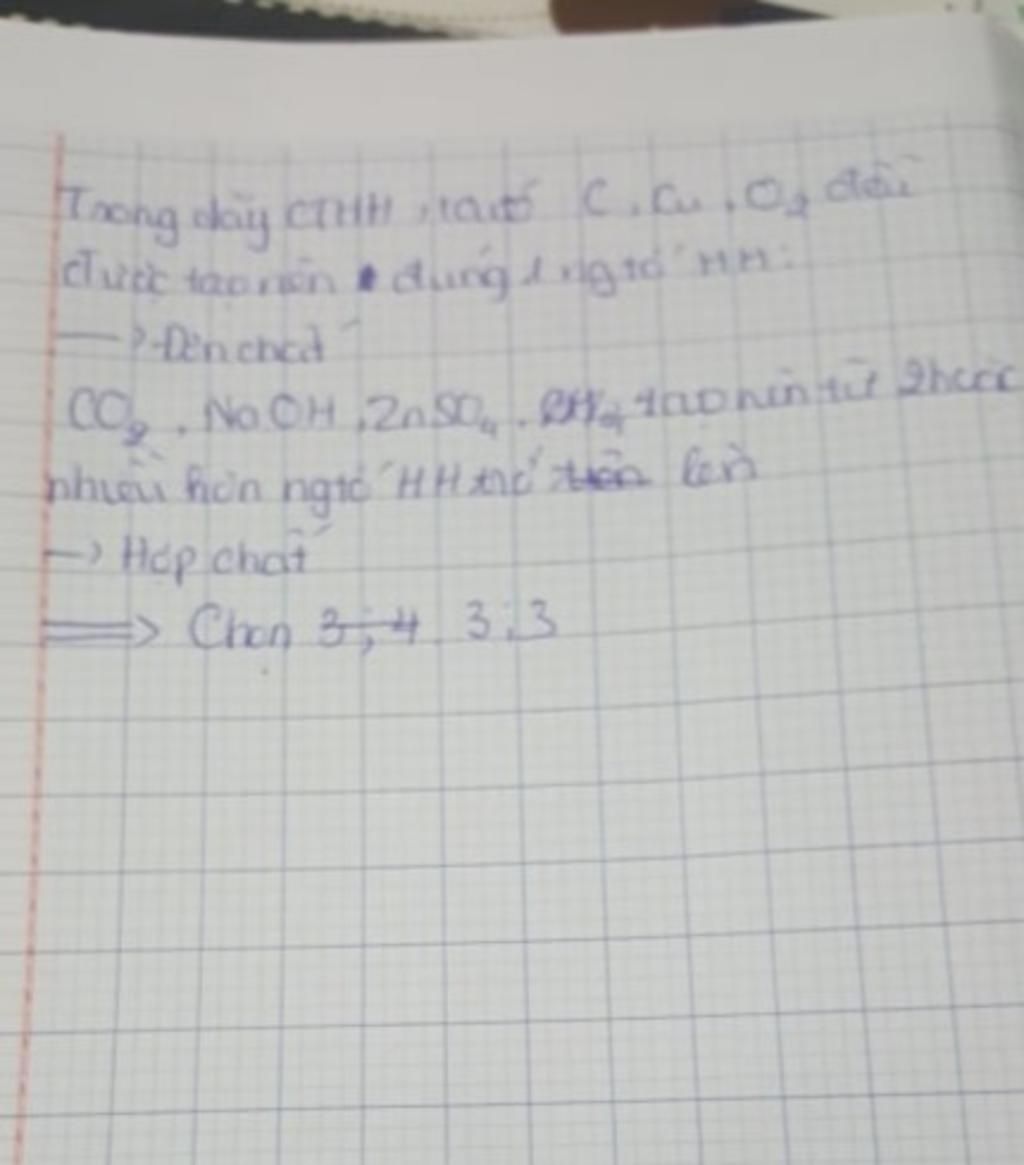 Trong dãy CTHH, ta có C, Cu, O2 đều
được tạo nên đúng 1 ng tố HH:
—> Đơn chất
CO2, NaOH, ZnSO4, tạo nên từ 2 hoặc
nhiều hơn ng tố HH trở lên
—> Hợp chất
==> Chọn 3;4 3;3